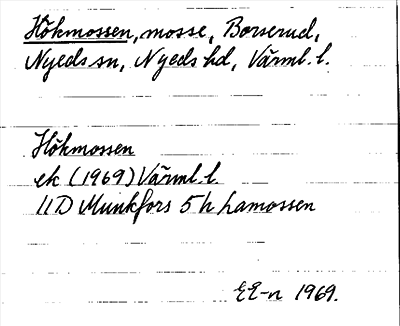 Hökmossen, mosse, Borserud,
Nyeds sn, Nyeds hd, Värml. l.
Hökmossen
ek (1969) Värml. l.
11D Munkfors 5 h Lamossen
EE-n 1969.